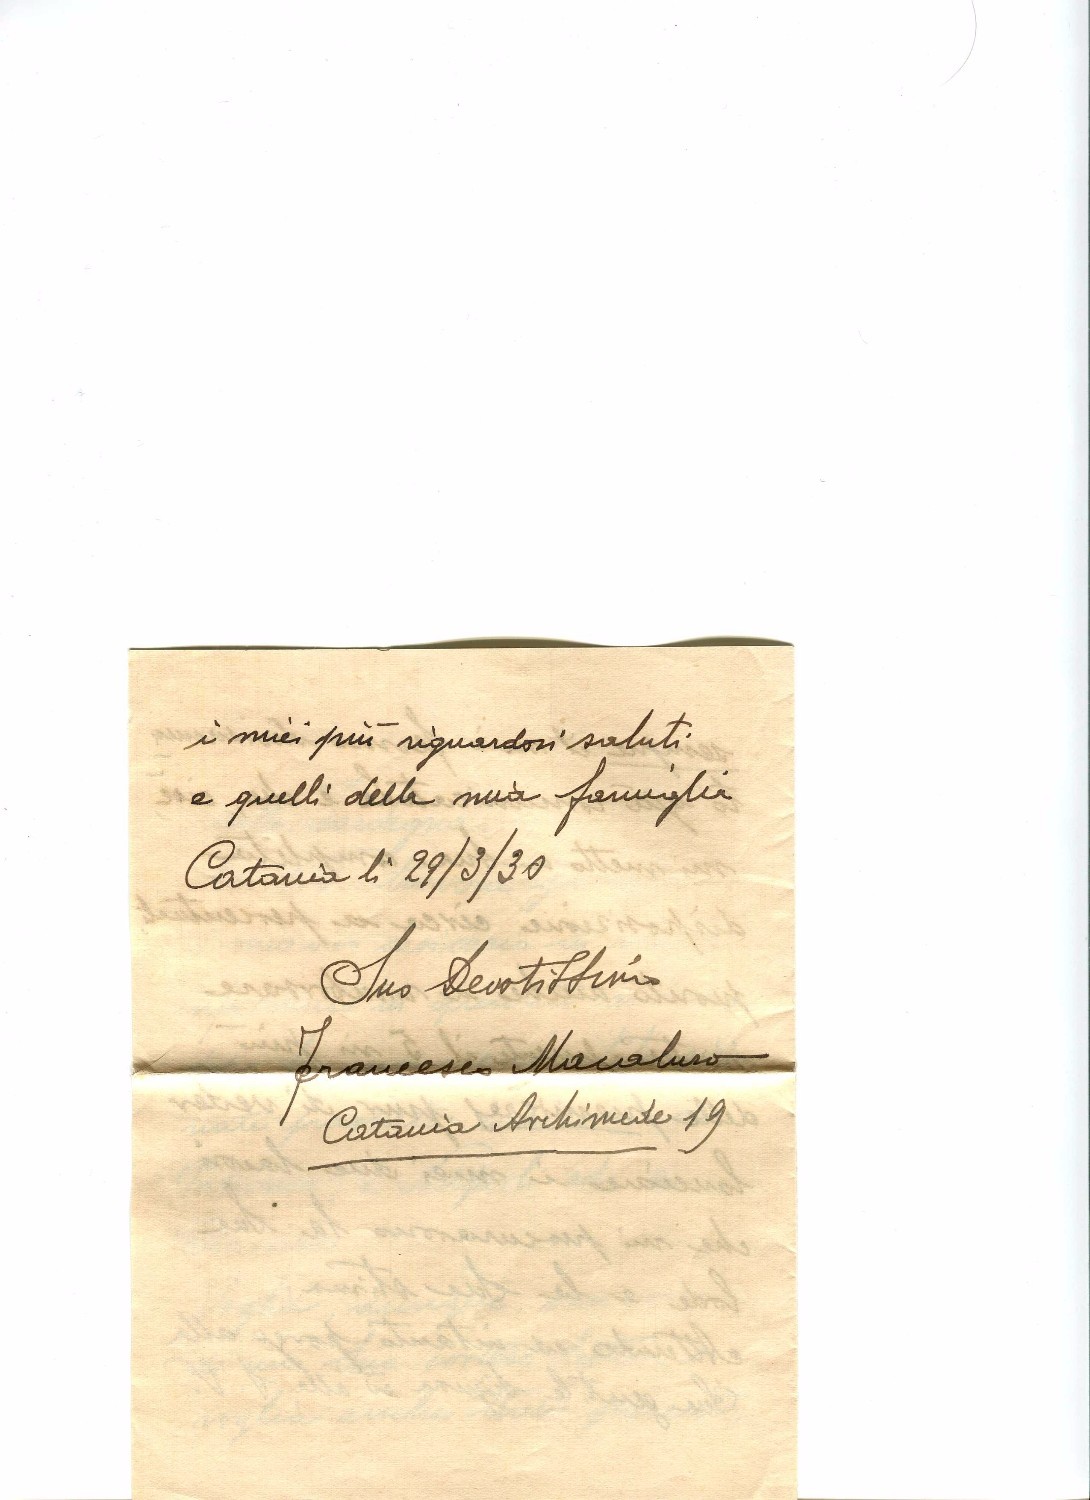 i miei più riguardosi saluti
e quelli della mia famiglia
Catania li 29/3/30
Suo Devotissimo
Francesco Macaluso
Catania Archimede 19